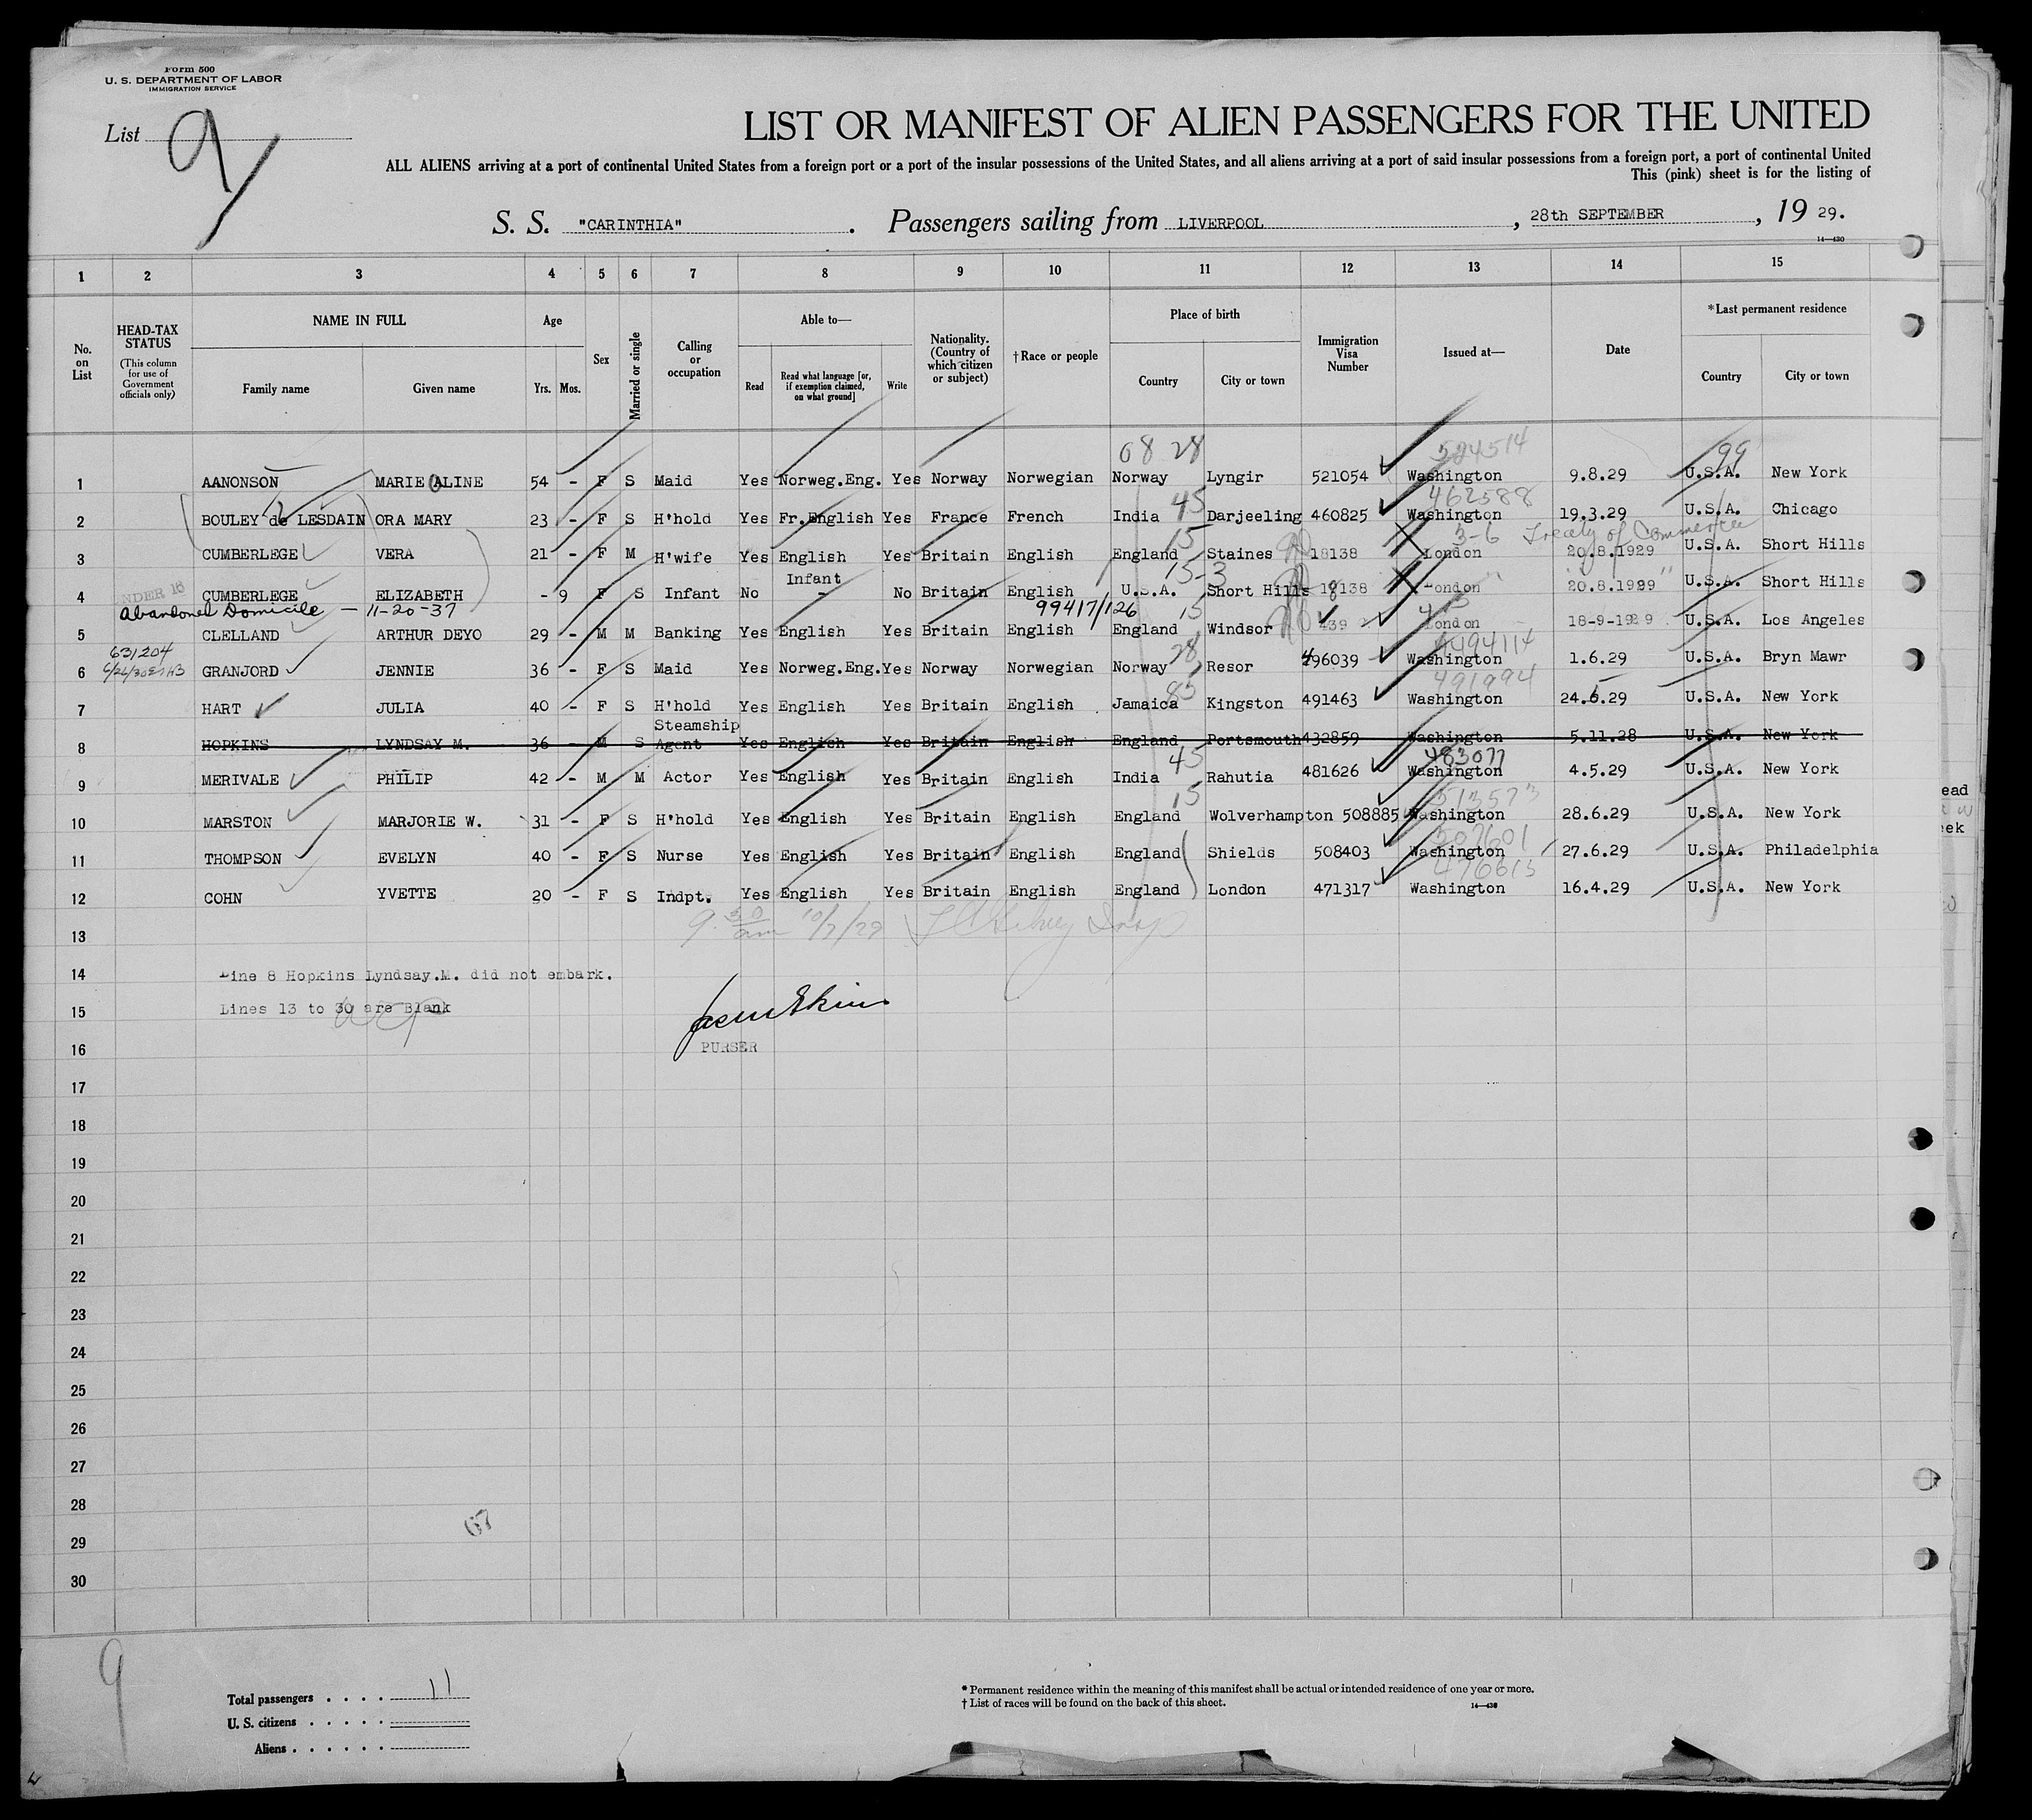 Form 500
U. S. DEPARTMENT OF LABOR
IMMIGRATION SERVICE
List 9
LIST OR MANIFEST OF ALIEN PASSENGERS FOR THE UNITED
ALL ALIENS arriving at a port of continental United States from a foreign port or a port of the insular possessions of the United States, and all aliens arriving at a port of said insular possessions from a foreign port, a port of continental United
This (pink) sheet is for the listing of
S. S. "CARINTHIA". Passengers sailing from LIVERPOOL, 28th SEPTEMBER, 19 29.
14—430
1 2 3 4 5 6 7 8 9 10 11 12 13 14 15
No. on List
HEAD-TAX STATUS
(This column for use of Government officials only)
NAME IN FULL
Family name Given name
Age
Yrs. Mos.
Sex
Married or single
Calling or occupation
Able to—
Read
Read what language [or, if exemption claimed, on what ground]
Write
Nationality. (Country of which citizen or subject)
†Race or people
Place of birth
Country City or town
Immigration Visa Number
Issued at—
Date
*Last permanent residence
Country City or town
08 28 524514 99
1 AANONSON MARIE ALINE 54 - F S Maid Yes Norweg.Eng. Yes Norway Norwegian Norway Lyngir 521054 Washington 9.8.29 U.S.A. New York
45 462588
2 BOULEY de LESDAIN ORA MARY 23 - F S H'hold Yes Fr.English Yes France French India Darjeeling 460825 Washington 19.3.29 U.S.A. Chicago
15 3-6 Treaty of Commerce
3 CUMBERLEGE VERA 21 - F M H'wife Yes English Yes Britain English England Staines 18138 London 20.8.1929 U.S.A. Short Hills
15-3
UNDER 16
4 CUMBERLEGE ELIZABETH - 9 F S Infant No Infant - No Britain English U.S.A. Short Hills 18138 London 20.8.1929 U.S.A. Short Hills
Abandoned Domicile — 11-20-37 99417/126 15
5 CLELLAND ARTHUR DEYO 29 - M M Banking Yes English Yes Britain English England Windsor 439 London 18-9-1929 U.S.A. Los Angeles
631204 28
6 GRANJORD JENNIE 36 - F S Maid Yes Norweg.Eng. Yes Norway Norwegian Norway Resor 496039 Washington 1.6.29 U.S.A. Bryn Mawr
85 491994
7 HART JULIA 40 - F S H'hold Yes English Yes Britain English Jamaica Kingston 491463 Washington 24.5.29 U.S.A. New York
8 HOPKINS LYNDSAY M. 36 - M S Steamship Agent Yes English Yes Britain English England Portsmouth 432859 Washington 5.11.28 U.S.A. New York
45 483077
9 MERIVALE PHILIP 42 - M M Actor Yes English Yes Britain English India Rahutia 481626 Washington 4.5.29 U.S.A. New York
15 513573
10 MARSTON MARJORIE W. 31 - F S H'hold Yes English Yes Britain English England Wolverhampton 508885 Washington 28.6.29 U.S.A. New York
507601
11 THOMPSON EVELYN 40 - F S Nurse Yes English Yes Britain English England Shields 508403 Washington 27.6.29 U.S.A. Philadelphia
476613
12 COHN YVETTE 20 - F S Indpt. Yes English Yes Britain English England London 471317 Washington 16.4.29 U.S.A. New York
13 9.30 am 10/7/29 Insp
14 Line 8 Hopkins Lyndsay.M. did not embark.
15 Lines 13 to 30 are Blank
16 PURSER
17
18
19
20
21
22
23
24
25
26
27
28
29
30
67
9
Total passengers . . . . 11
U. S. citizens . . . . .
Aliens . . . . . .
* Permanent residence within the meaning of this manifest shall be actual or intended residence of one year or more.
† List of races will be found on the back of this sheet.
14—430
ead
eek